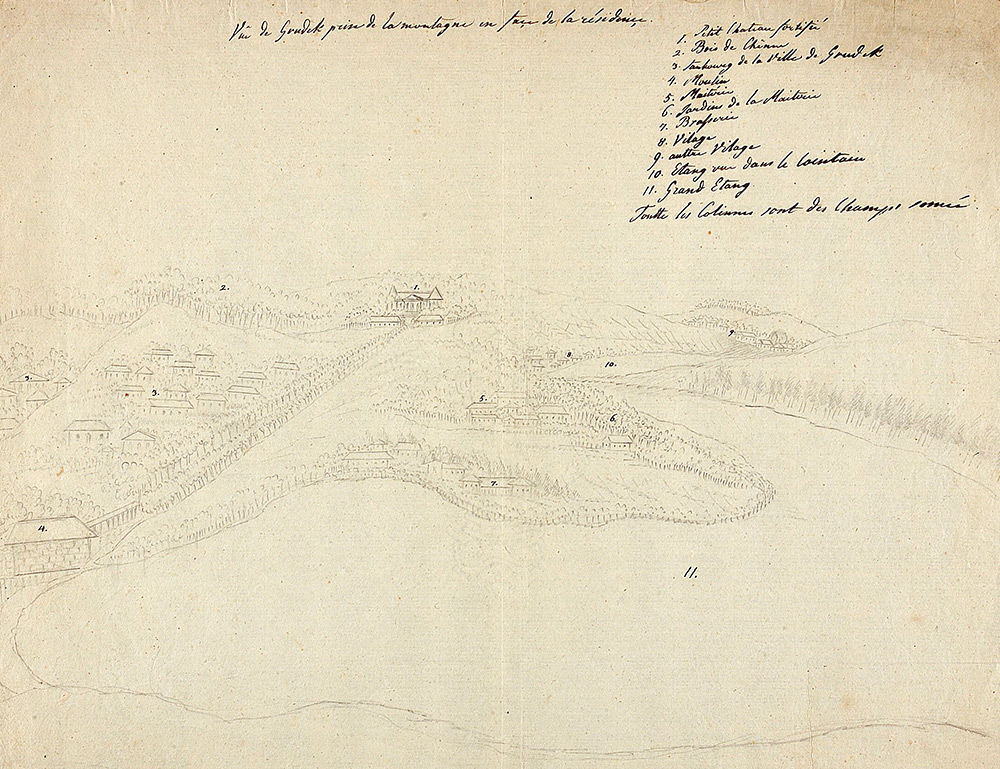 Vüe de Grudek prise de la montagne en façe de la résidençe.
1. Petit Chateau fortifié
2. Bois de Chênne
3. Faubourg de la Ville de Grudek
4. Moulin
5. Maiterie
6. Jardins de la Maiterie
7. Brasserie
8. Vilage
9. auttre Vilage
10. Etang vue dans le lointain
11. Grand Etang
Toutte les Colinnes sont des Champs semés
2.
1.
9
8
10.
3.
3.
5.
6.
7.
4.
11.